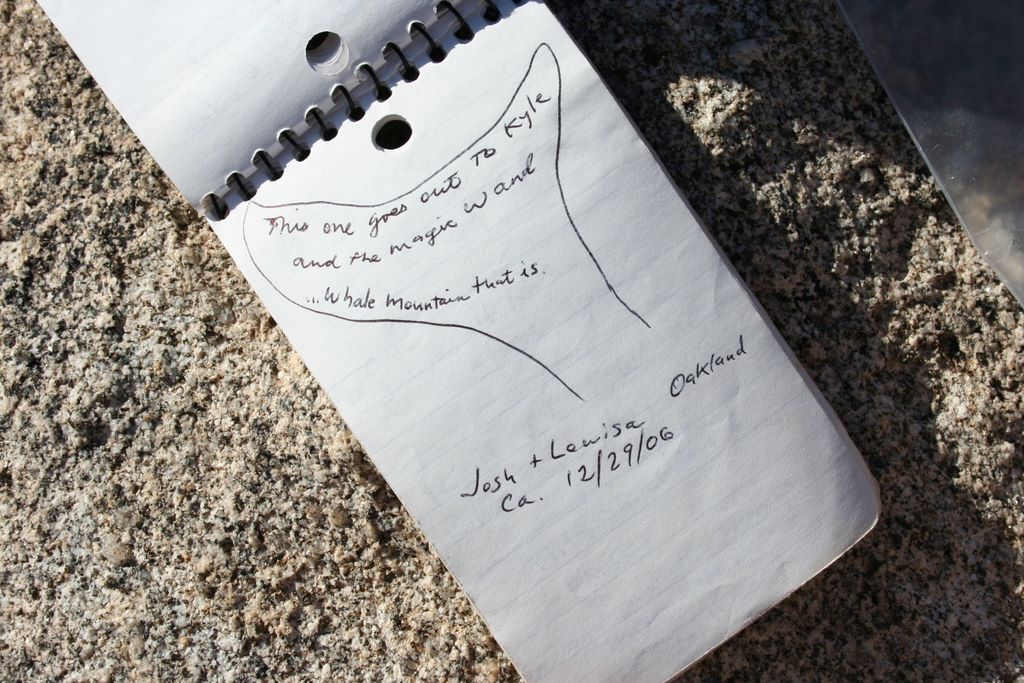 This one goes out To Kyle
and the magic wand
...Whale Mountain that is.
Josh + Lewisa Oakland
Ca. 12/29/06